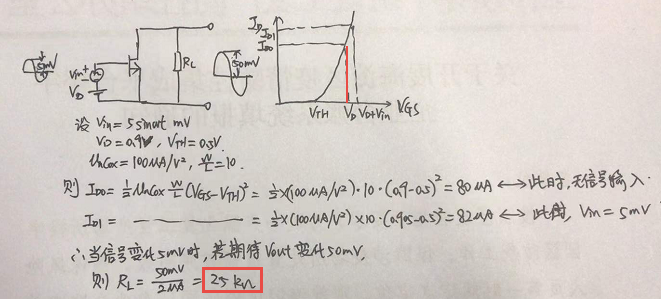 5mV
Vin
VD
RL
50mV
ID
ID1
ID0
VTH
VD
VD+Vin
VGS
设 Vin = 5 sinωt mV
VD = 0.9V, VTH = 0.5V.
UnCox = 100UA/V², W/L = 10.
则 ID0 = 1/2 UnCox W/L (VGS-VTH)² = 1/2×(100UA/V²)·10·(0.9-0.5)² = 80UA ⟷ 此时,无信号输入.
ID1 = —— = 1/2×(100UA/V²)×10·(0.905-0.5)² = 82UA ⟷ 此时, Vin = 5mV
∴当信号变化5mV时, 若期待Vout变化50mV,
则 RL = 50mV/2UA = 25kΩ